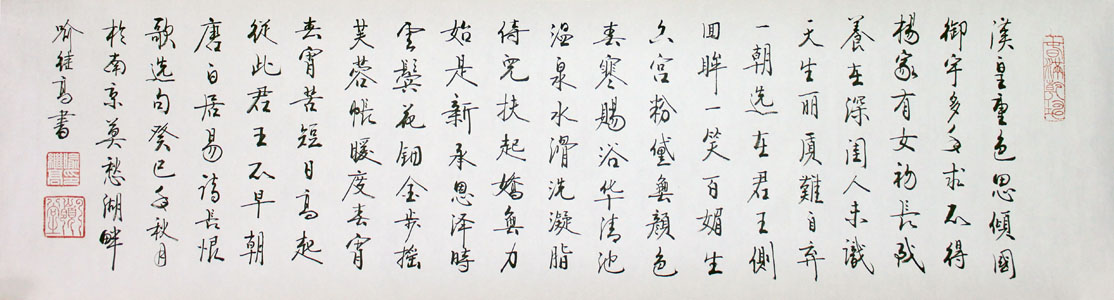 漢皇重色思傾國
御宇多年求不得
楊家有女初長成
養在深閨人未識
天生丽質難自弃
一朝选在君王側
回眸一笑百媚生
六宮粉黛無顏色
春寒賜浴华清池
温泉水滑洗凝脂
侍兒扶起嬌無力
始是新承恩泽時
雲鬢花鈿金步摇
芙蓉帳暖度春宵
春宵苦短日高起
從此君王不早朝
唐白居易詩長恨
歌选句癸巳年秋月
於南京莫愁湖畔
喻继高書